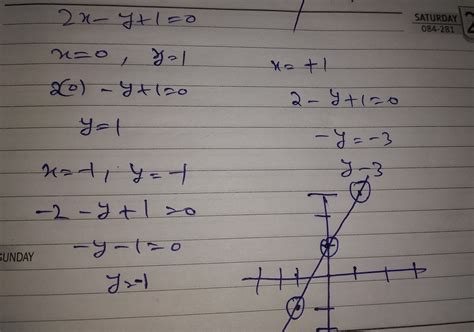 2x - y + 1 = 0
x = 0 , y = 1
2(0) - y + 1 = 0
y = 1
x = -1 , y = -1
-2 - y + 1 = 0
-y - 1 = 0
y = -1
x = +1
2 - y + 1 = 0
-y = -3
y - 3
SATURDAY
084-281
2
SUNDAY